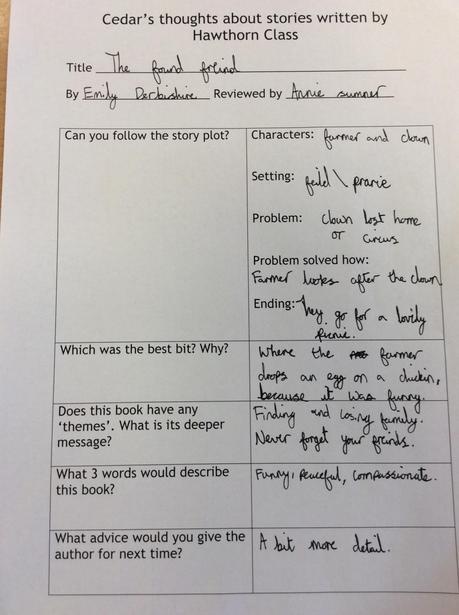 Cedar's thoughts about stories written by
Hawthorn Class
Title The found freind
By Emily Derbishire Reviewed by Annie sumner
Can you follow the story plot?
Characters: farmer and clown
Setting: feild \ prarie
Problem: clown lost home
or circus
Problem solved how:
Farmer looks after the clown
Ending: They go for a lovily
picnic.
Which was the best bit? Why?
Where the farmer
drops an egg on a chickin,
because it was funny.
Does this book have any
'themes'. What is its deeper
message?
Finding and losing family.
Never forget your freinds.
What 3 words would describe
this book?
Funny, peaceful, compassionate.
What advice would you give the
author for next time?
A bit more detail.